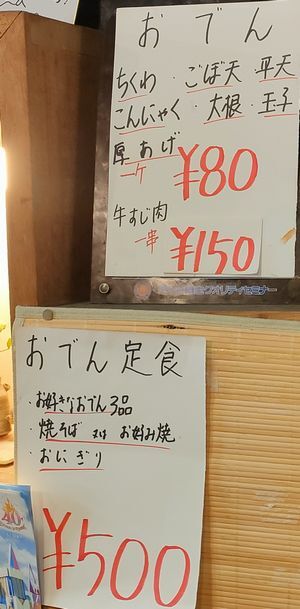 おでん
ちくわ・ごぼ天 平天
こんにゃく・大根・玉子
厚あげ
一ケ ¥80
牛すじ肉
一串 ¥150
クオリティセミナー
おでん定食
・お好きなおでん3品
・焼そば 又は お好み焼
・おにぎり
¥500
40